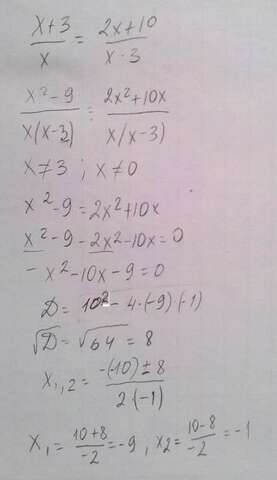 (x+3)/x = (2x+10)/(x-3)
(x²-9)/(x(x-3)) = (2x²+10x)/(x(x-3))
x≠3 ; x≠0
x²-9=2x²+10x
x²-9-2x²-10x=0
-x²-10x-9=0
D=10²-4·(-9)·(-1)
√D=√64=8
x₁,₂=(-(-10)±8)/(2(-1))
x₁=(10+8)/(-2)=-9, x₂=(10-8)/(-2)=-1